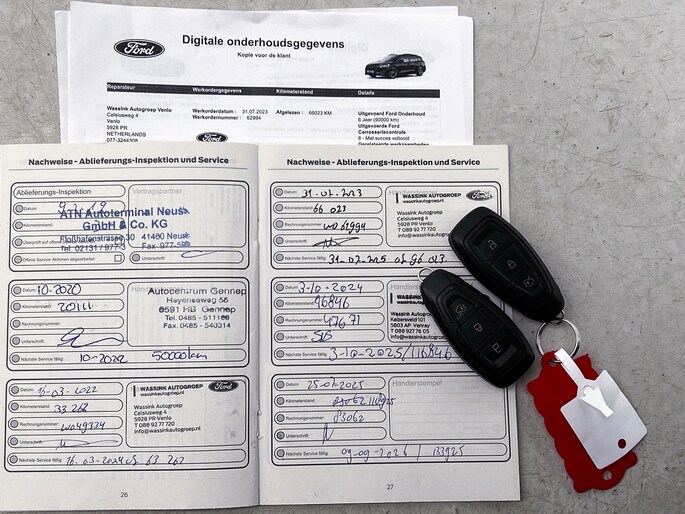 Ford
Digitale onderhoudsgegevens
Kopie voor de klant
Reparateur Werkordergegevens Kilometerstand Details
Wassink Autogroep Venlo
Celsiusweg 4
Venlo
5928 PR
NETHERLANDS
Werkorderdatum : 31.07.2023
Werkordernummer : 62994
Afgelezen : 66023 KM
Uitgevoerd Ford Onderhoud
6 Jaer (90000 km)
Uitgevoerde Ford
Carrosseriecontrole
6 - Met succes voltooid
Gerelateerde werkzaamheden
Ford
Nachweise - Ablieferungs-Inspektion und Service
Ablieferungs-Inspektion
Vertragspartner
Datum:
Kilometerstand:
ATN Autoterminal Neuss
GmbH & Co. KG
Floßhafenstrasse 30 41460 Neuss
Tel. 02131 / 977-3 Fax 977-599
Offene Service Aktionen abgearbeitet:
Unterschrift:
Datum: 10-2020
Kilometerstand: 20111
Rechnungsnummer:
Unterschrift:
Nächste Service fällig: 10-2022 50000km
Autocentrum Gennep
Heyenseweg 56
6591 HB Gennep
Tel. 0485 - 511166
Fax. 0485 - 540314
Datum: 16-03-2022
Kilometerstand: 33 262
Rechnungsnummer: W049334
Unterschrift:
Nächste Service fällig: 16-03-2024 of 63 262
WASSINK AUTOGROEP
Ford
Wassink Autogroep
Celsiusweg 4
5928 PR Venlo
T 088 92 77 720
info@wassinkautogroep.nl
26
Nachweise - Ablieferungs-Inspektion und Service
Datum: 31-07-2023
Kilometerstand: 66 023
Rechnungsnummer: W062994
Unterschrift:
Nächste Service fällig: 31-07-2025 of 96 023
WASSINK AUTOGROEP
Ford
Wassink Autogroep
Celsiusweg 4
5928 PR Venlo
T 088 92 77 720
Datum: 3-10-2024
Kilometerstand: 96846
Rechnungsnummer: 47671
Unterschrift:
Nächste Service fällig: 3-10-2025/116846
Wassink Autogroep
Keizersveld 101
5803 AP Venray
Datum: 25-07-2025
Kilometerstand:
Rechnungsnummer: 83062
Unterschrift:
Händlerstempel
Nächste Service fällig: 09-09-2026 /
27